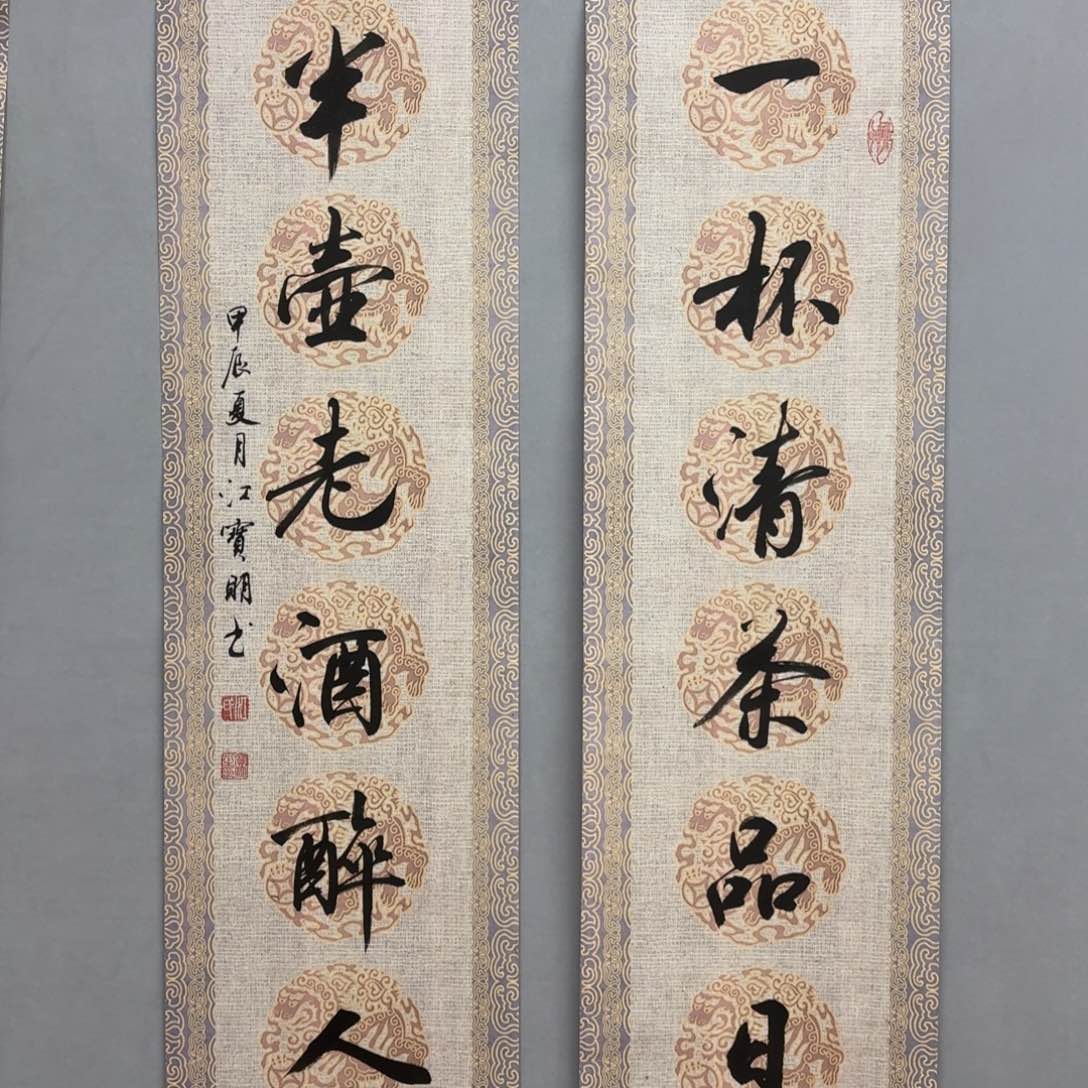 一杯清茶品日
半壺老酒醉人
甲辰夏月江寶明书